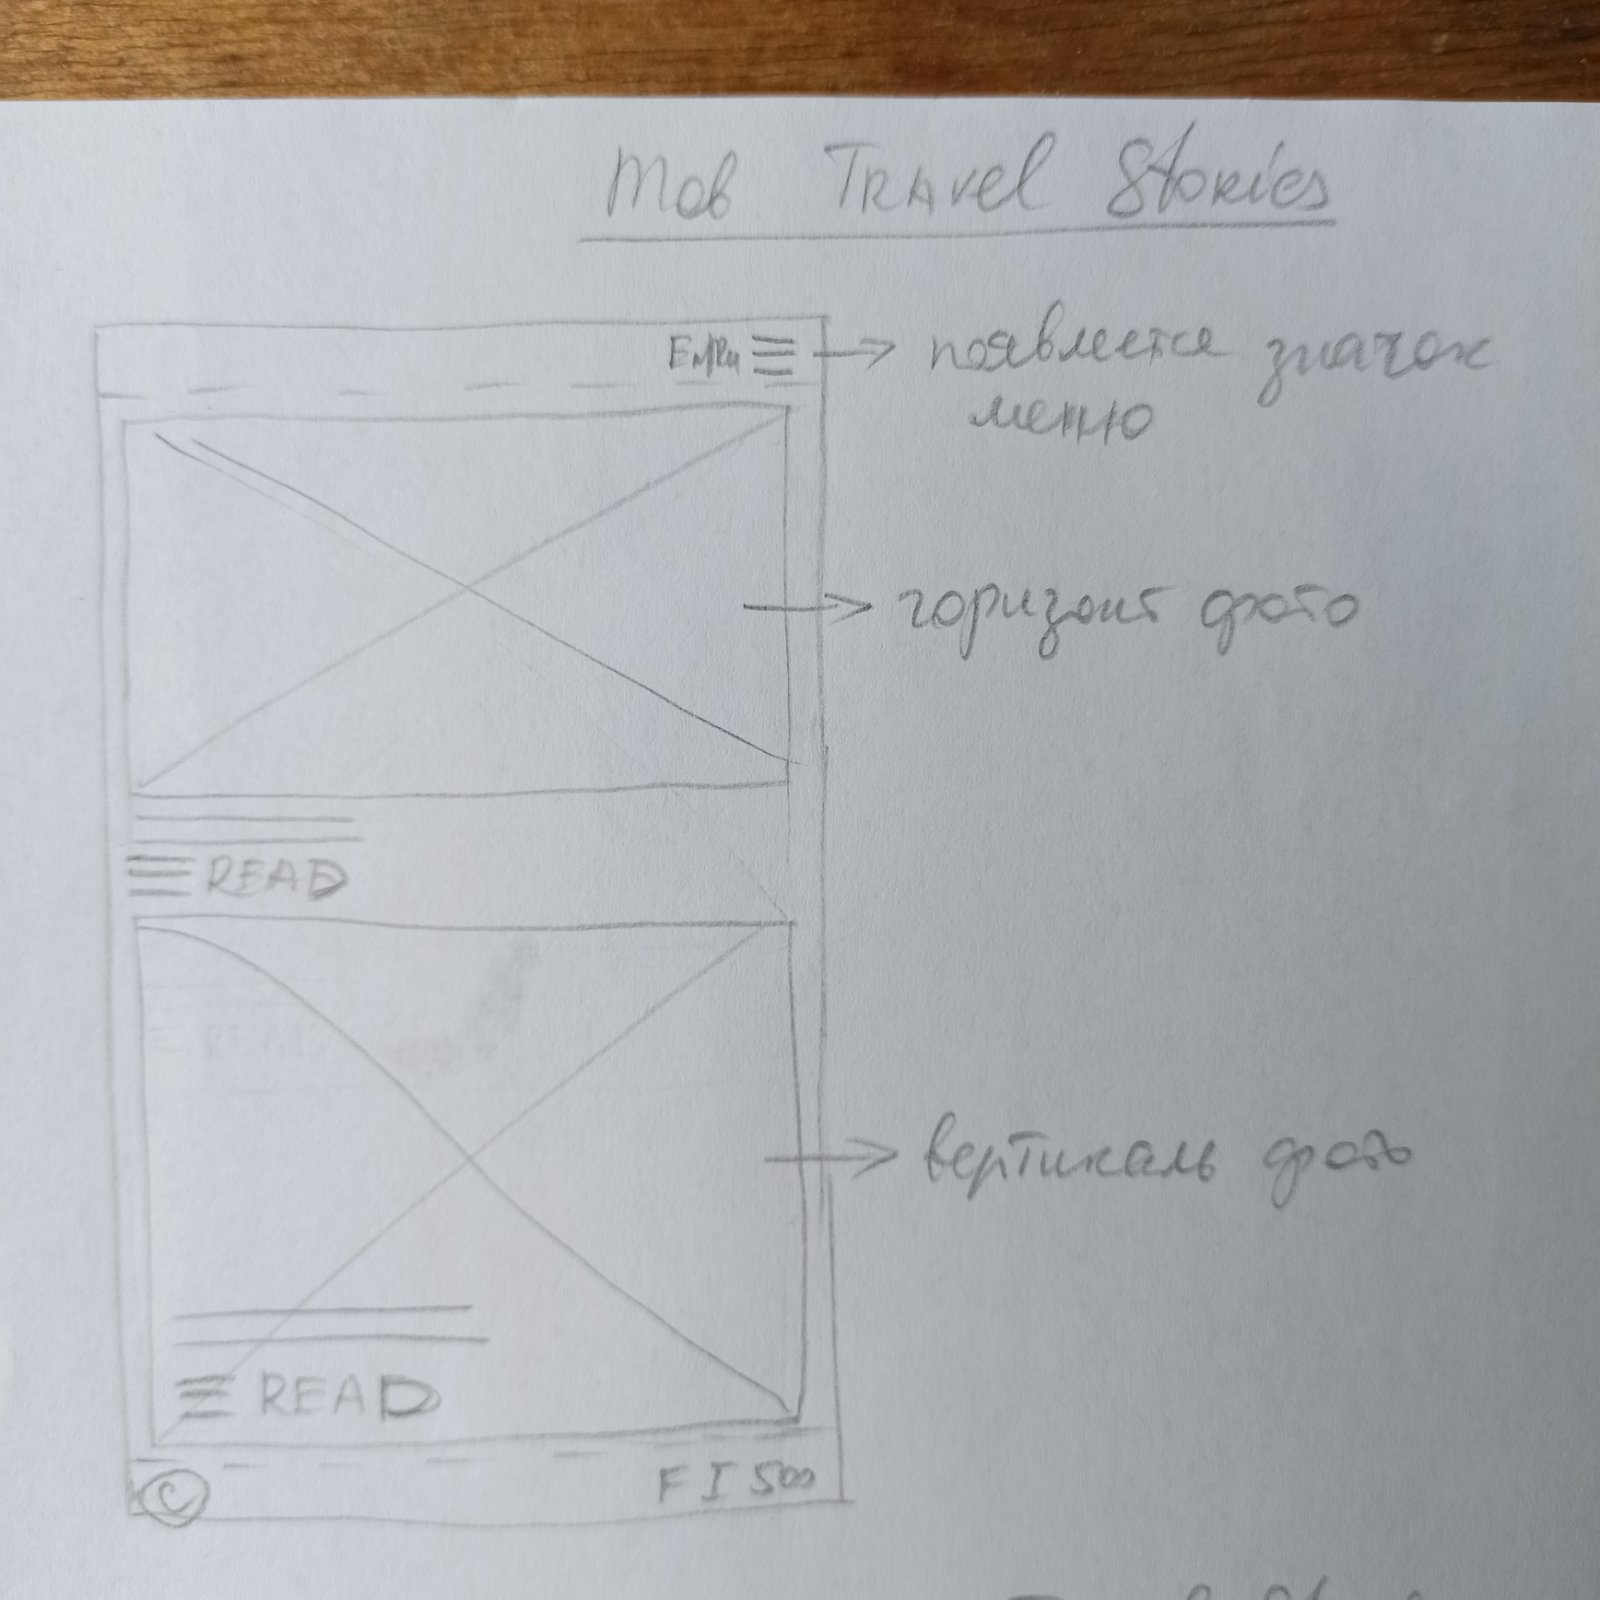 Mob Travel Stories
En/Ru
появляется значок
меню
горизонт фото
READ
вертикаль фото
READ
© F I 500